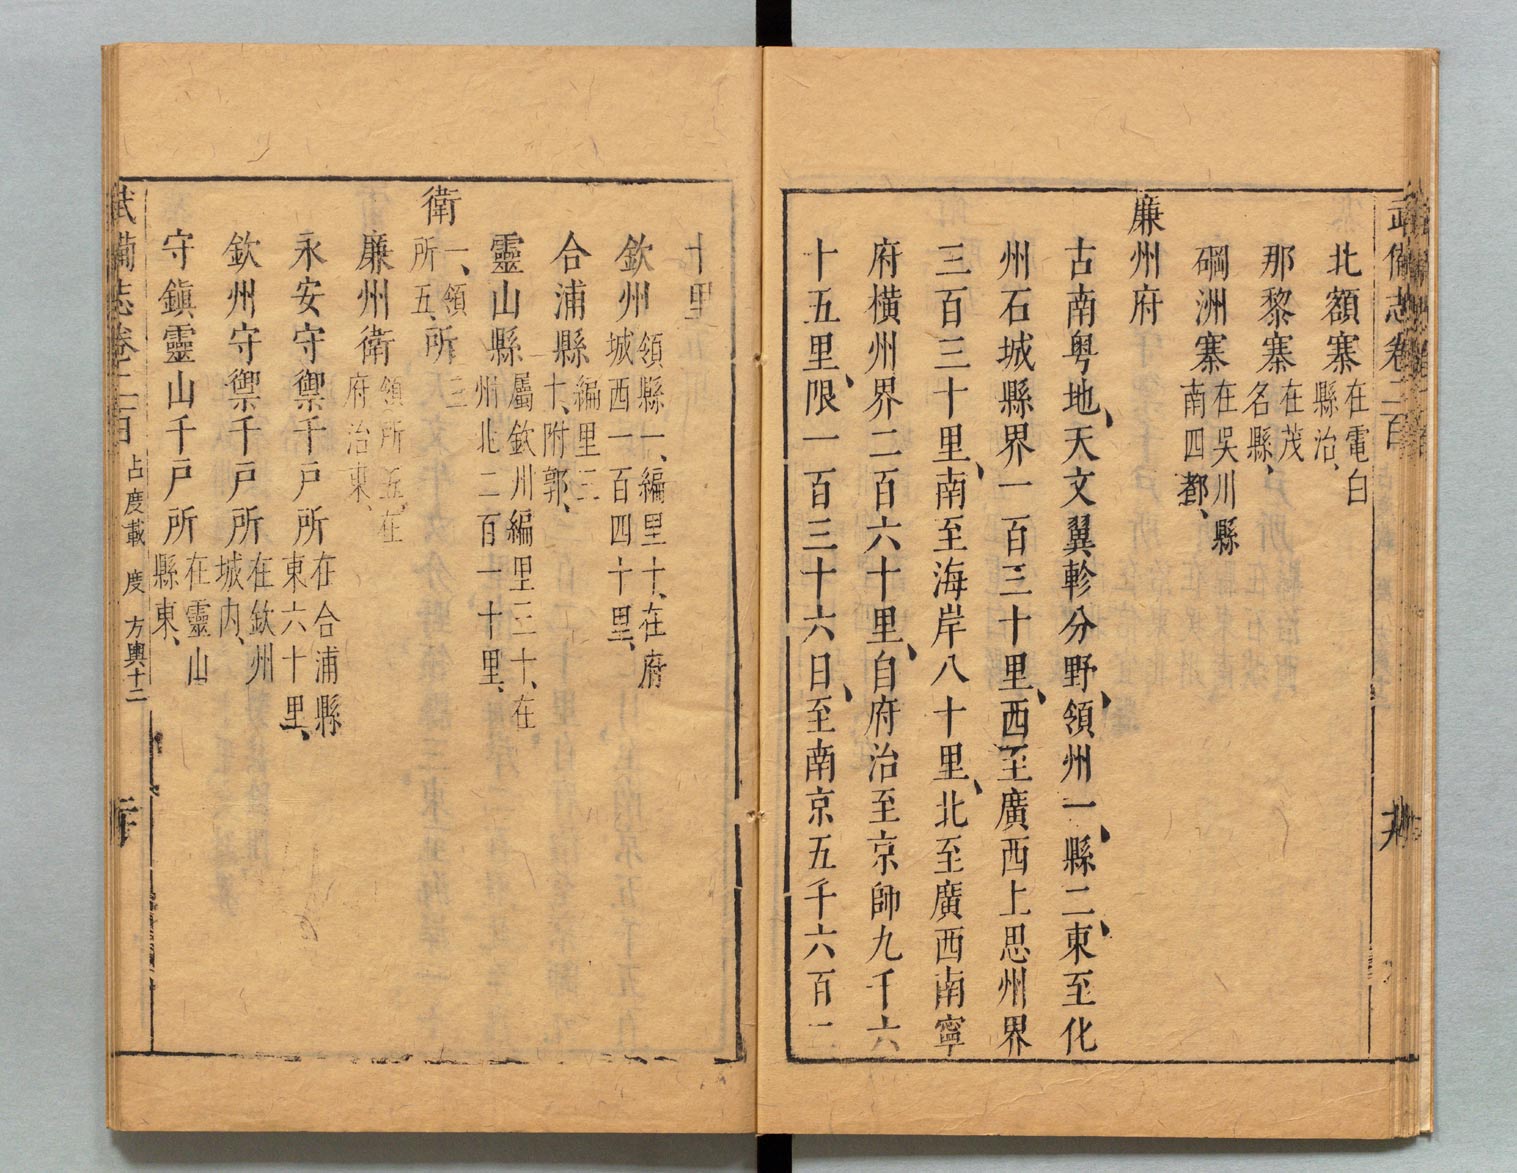 武備志卷二百
北額寨在電白縣治、
那黎寨在茂名縣、
硇洲寨在吳川縣南四都、
廉州府
古南粤地、天文翼軫分野、領州一、縣二、東至化
州石城縣界一百三十里、西至廣西上思州界
三百三十里、南至海岸八十里、北至廣西南寧
府横州界二百六十里、自府治至京師九千六
十五里、限一百三十六日、至南京五千六百二
十里
欽州領縣一、編里十、在府城西一百四十里、
合浦縣編里三十、附郭、
靈山縣屬欽州編里二十、在州北二百一十里、
衛一、領所五、所三
廉州衛領所五、在府治東、
永安守禦千戶所在合浦縣東六十里、
欽州守禦千戶所在欽州城内、
守鎮靈山千戶所在靈山縣東、
武備志卷二百 占度載 度 方輿十二